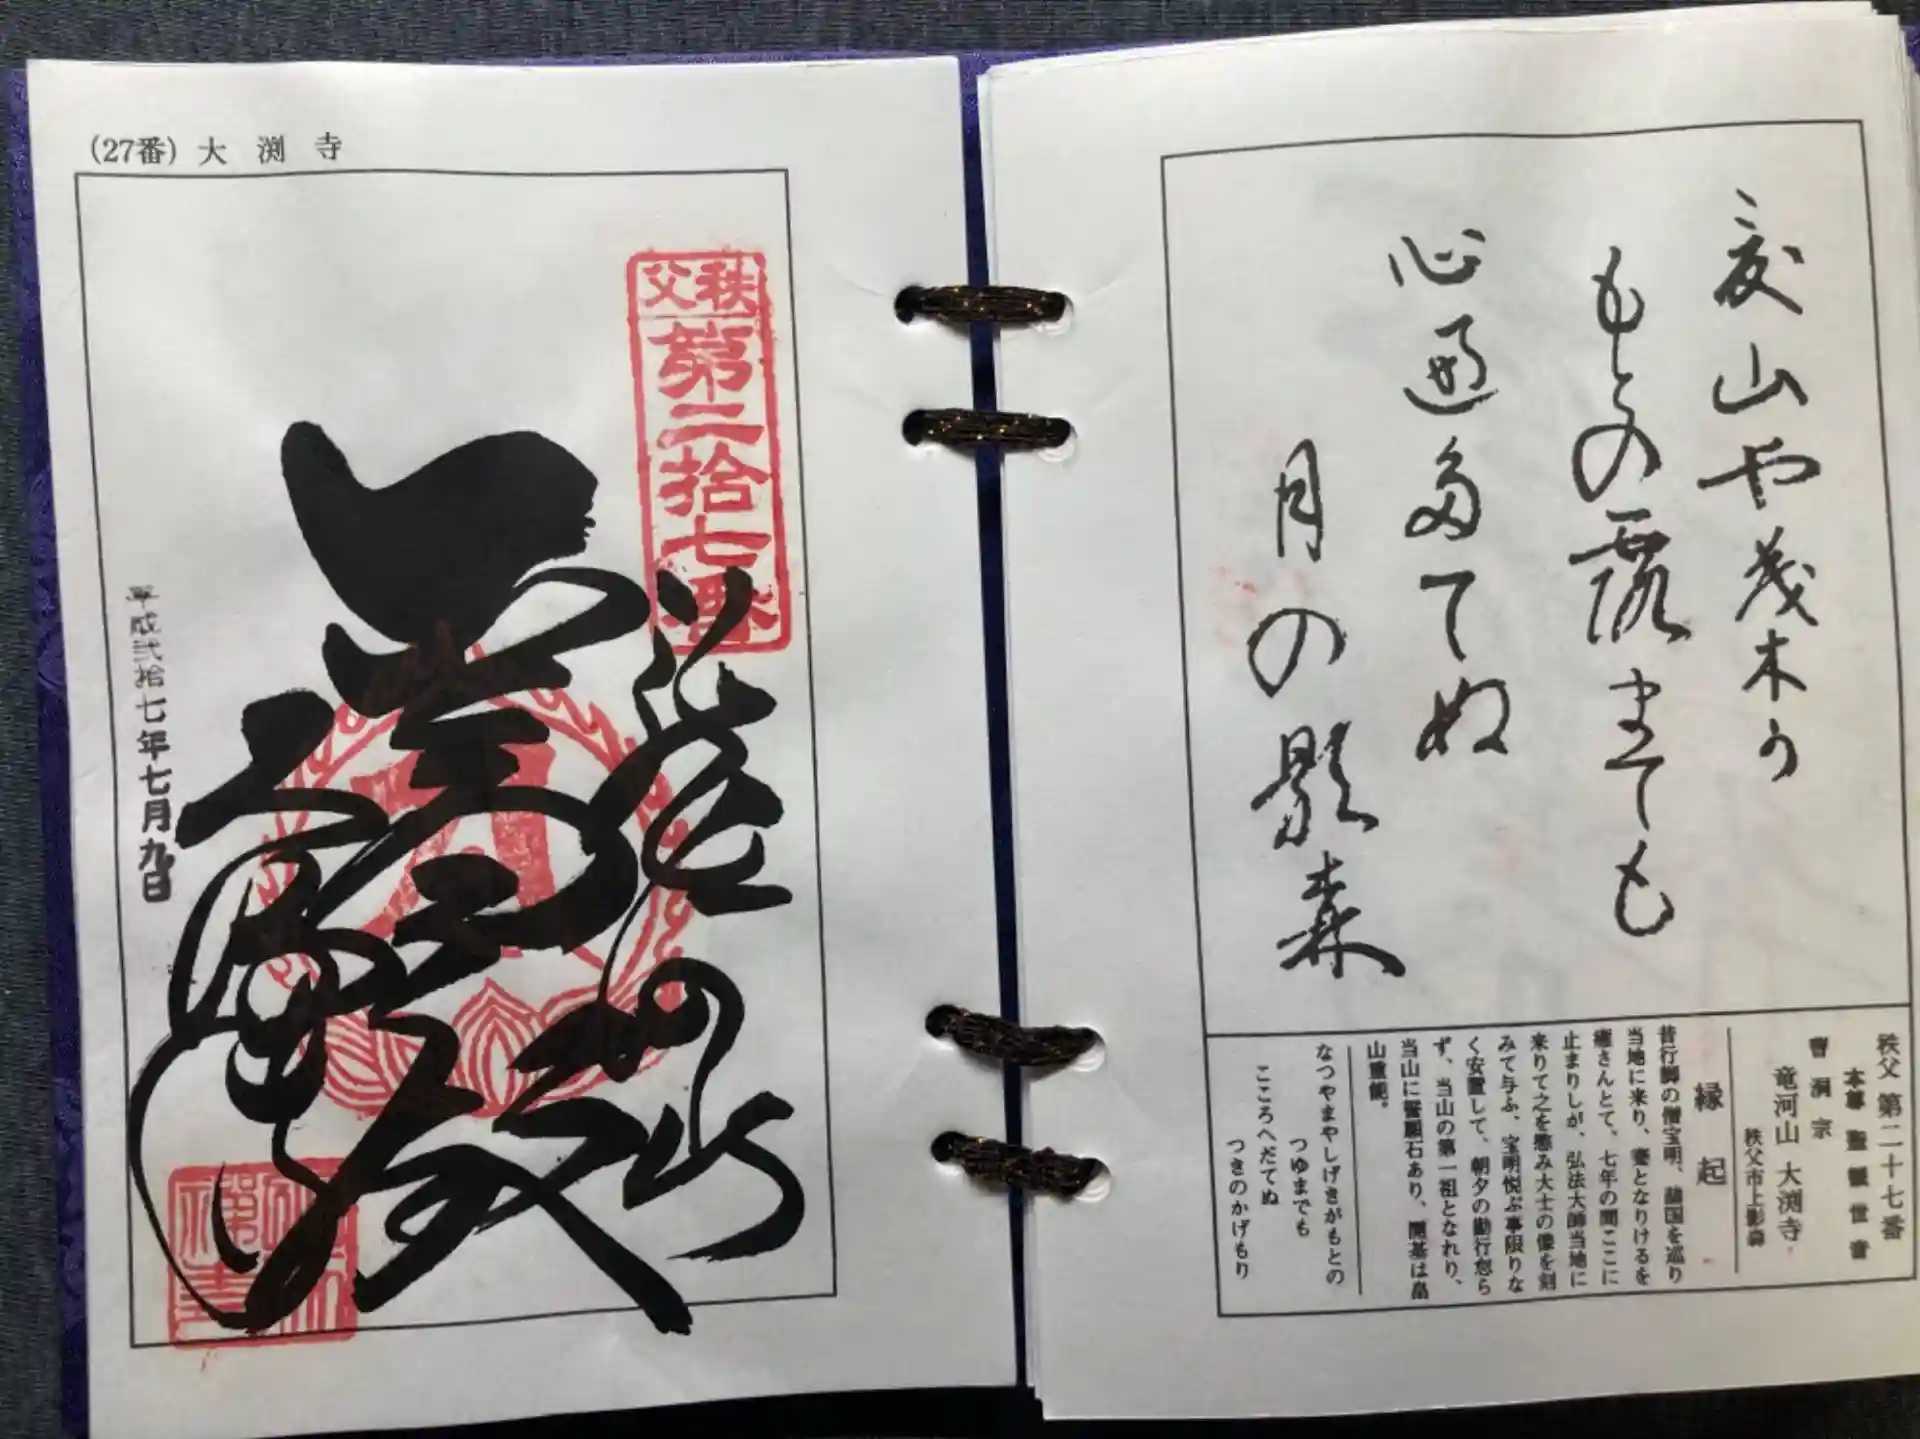 (27番) 大渕寺
秩父
第二拾七番
平成弐拾七年七月九日
夏山や茂木か
もとの露までも
心遍多てぬ
月の影森
秩父第二十七番
本尊 聖観世音
曹洞宗
竜河山 大渕寺
秩父市上影森
縁起
昔行脚の僧宝明、諸国を巡り
当地に来り、蹇となりけるを
癒さんとて、七年の間ここに
止まりしが、弘法大師当地に
来りて之を愍み大士の像を刻
みて与ふ、宝明悦ぶ事限りな
く安置して、朝夕の勤行怠ら
ず、当山の第一祖となれり、
当山に誓願石あり、開基は畠
山重能。
なつやまやしげきがもとの
つゆまでも
こころへだてぬ
つきのかげもり